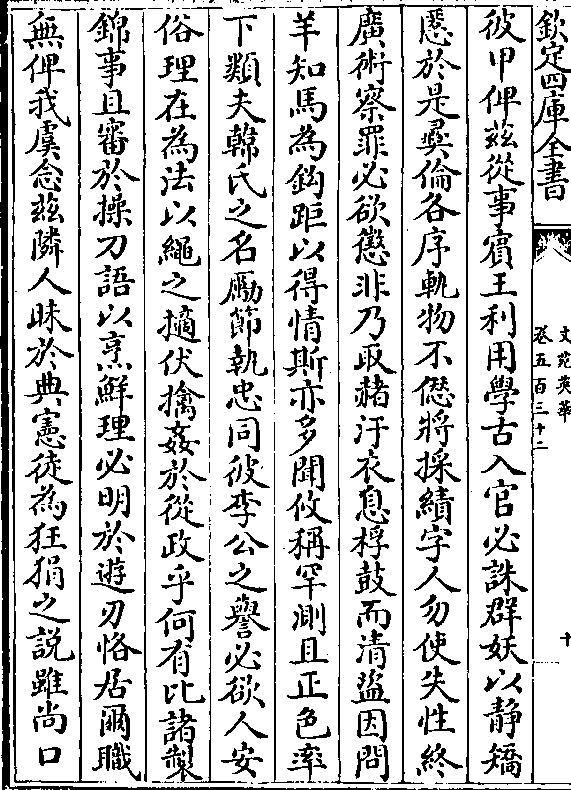 欽定四庫全書
文苑英華
卷五百三十二
十
彼甲俾兹從事賓王利用學古入官必誅群妖以静矯
慝於是彛倫各序軌物不僁將採績字人勿使失性終
廣術察罪必欲懲非乃取赭汙衣息桴鼓而清盜因問
羊知馬為鈎距以得情斯亦多聞攸稱罕測且正色率
下類夫韓氏之名勵節執忠同彼李公之譽必欲人安
俗理在為法以繩之擿伏擒姦於從政乎何有比諸製
錦事且審於操刀語以烹鮮理必明於遊刃恪居爾職
無俾我虞念兹隣人昧於典憲徒為狂狷之説雖尚口